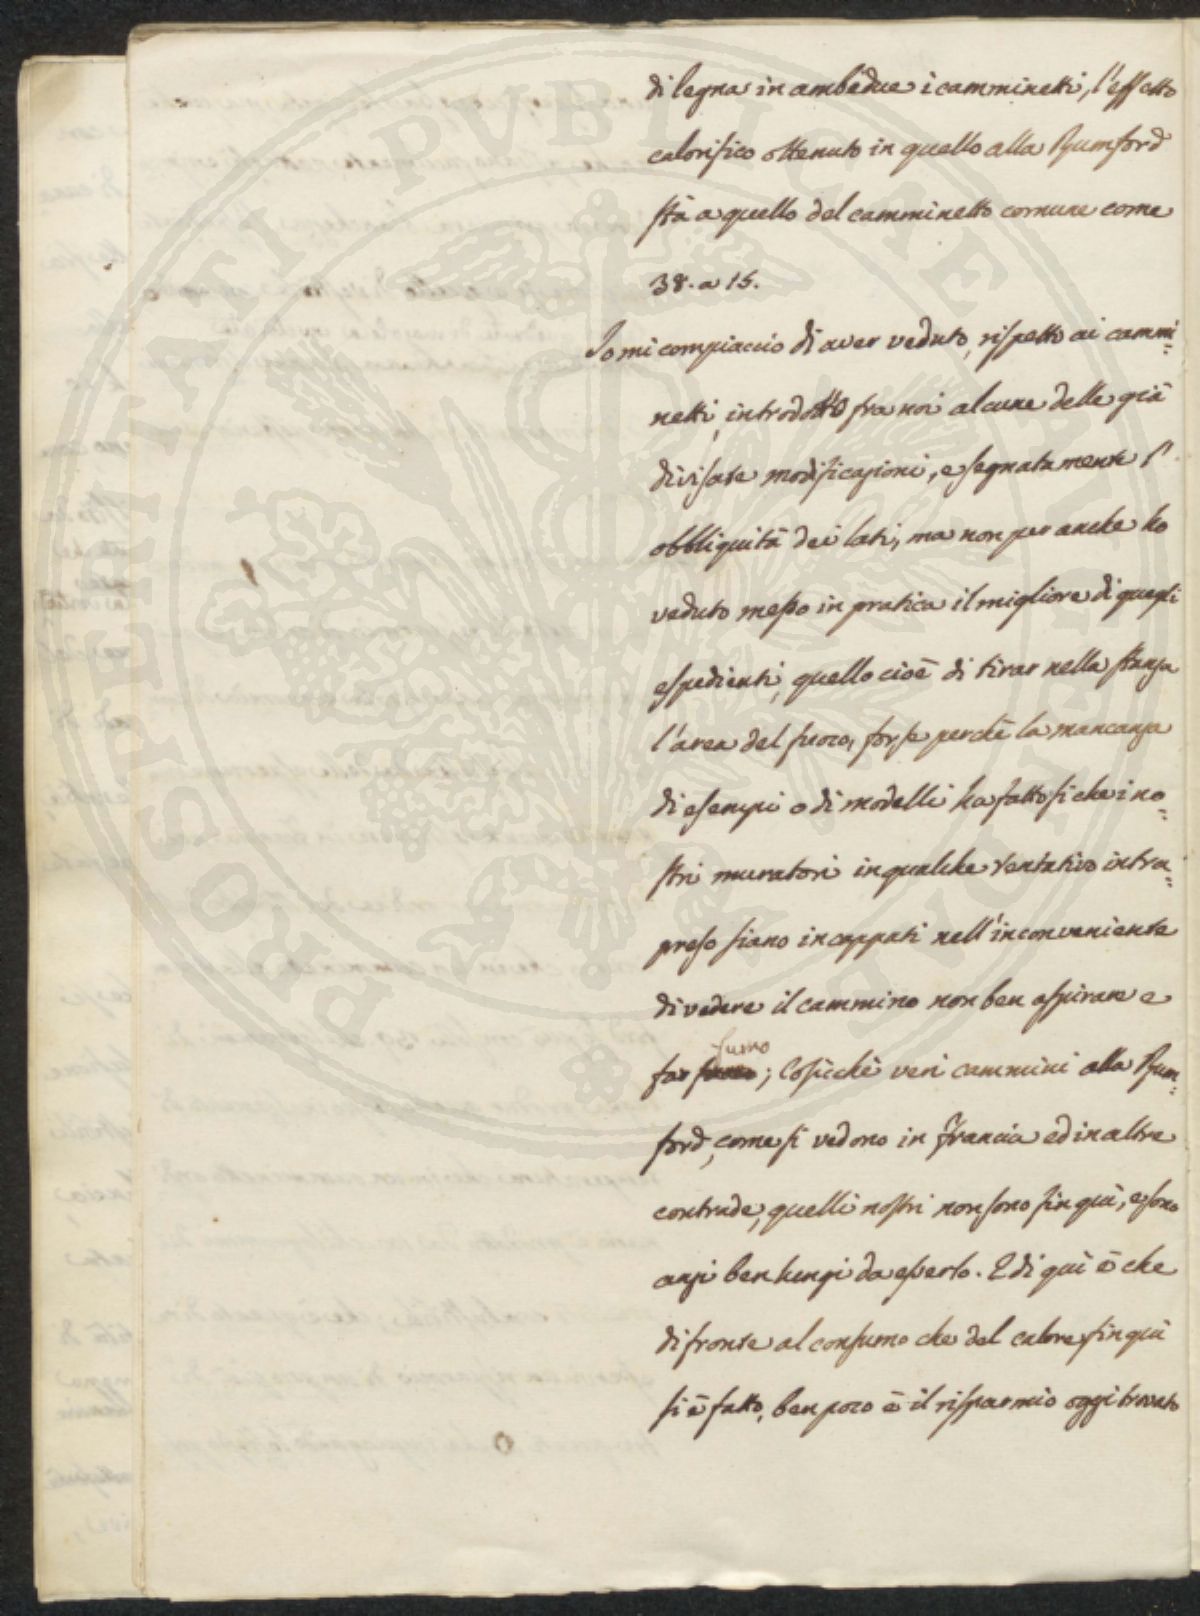 di legna in ambedue i camminetti, l'effetto
calorifico ottenuto in quello alla Rumford
stà a quello del camminetto comune come
38. a 15.
Io mi compiaccio di aver veduto, rispetto ai cammi=
netti, introdotto fra noi alcune delle già
divisate modificazioni, e segnatamente l'
obbliquità dei lati, ma non per anche ho
veduto messo in pratica il migliore di quegli
espedienti, quello cioè di tirar nella stanza
l'area del fuoco, forse perchè la mancanza
di esempi o di modelli ha fatto si che i no=
stri muratori in qualche tentativo intra=
preso siano incappati nell'inconveniente
di vedere il cammino non ben aspirare e
far fumo; Cosicchè veri cammini alla Rum=
ford, come si vedono in Francia ed in altre
contrade, quelli nostri non sono fin quì, e sono
anzi ben lungi da esserlo. E di quì è che
di fronte al consumo che del calore fin quì
si è fatto, ben poco è il risparmio oggi trovato
PROSPERITATI PUBLICAE AUGENDAE